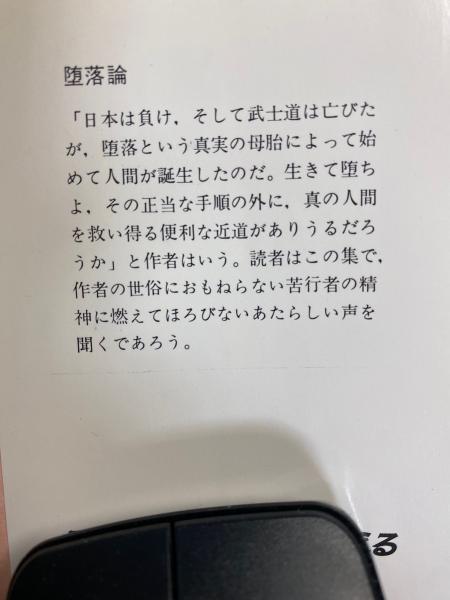 堕落論
「日本は負け，そして武士道は亡びた
が，堕落という真実の母胎によって始
めて人間が誕生したのだ。生きて堕ち
よ，その正当な手順の外に，真の人間
を救い得る便利な近道がありうるだろ
うか」と作者はいう。読者はこの集で，
作者の世俗におもねらない苦行者の精
神に燃えてほろびないあたらしい声を
聞くであろう。
る